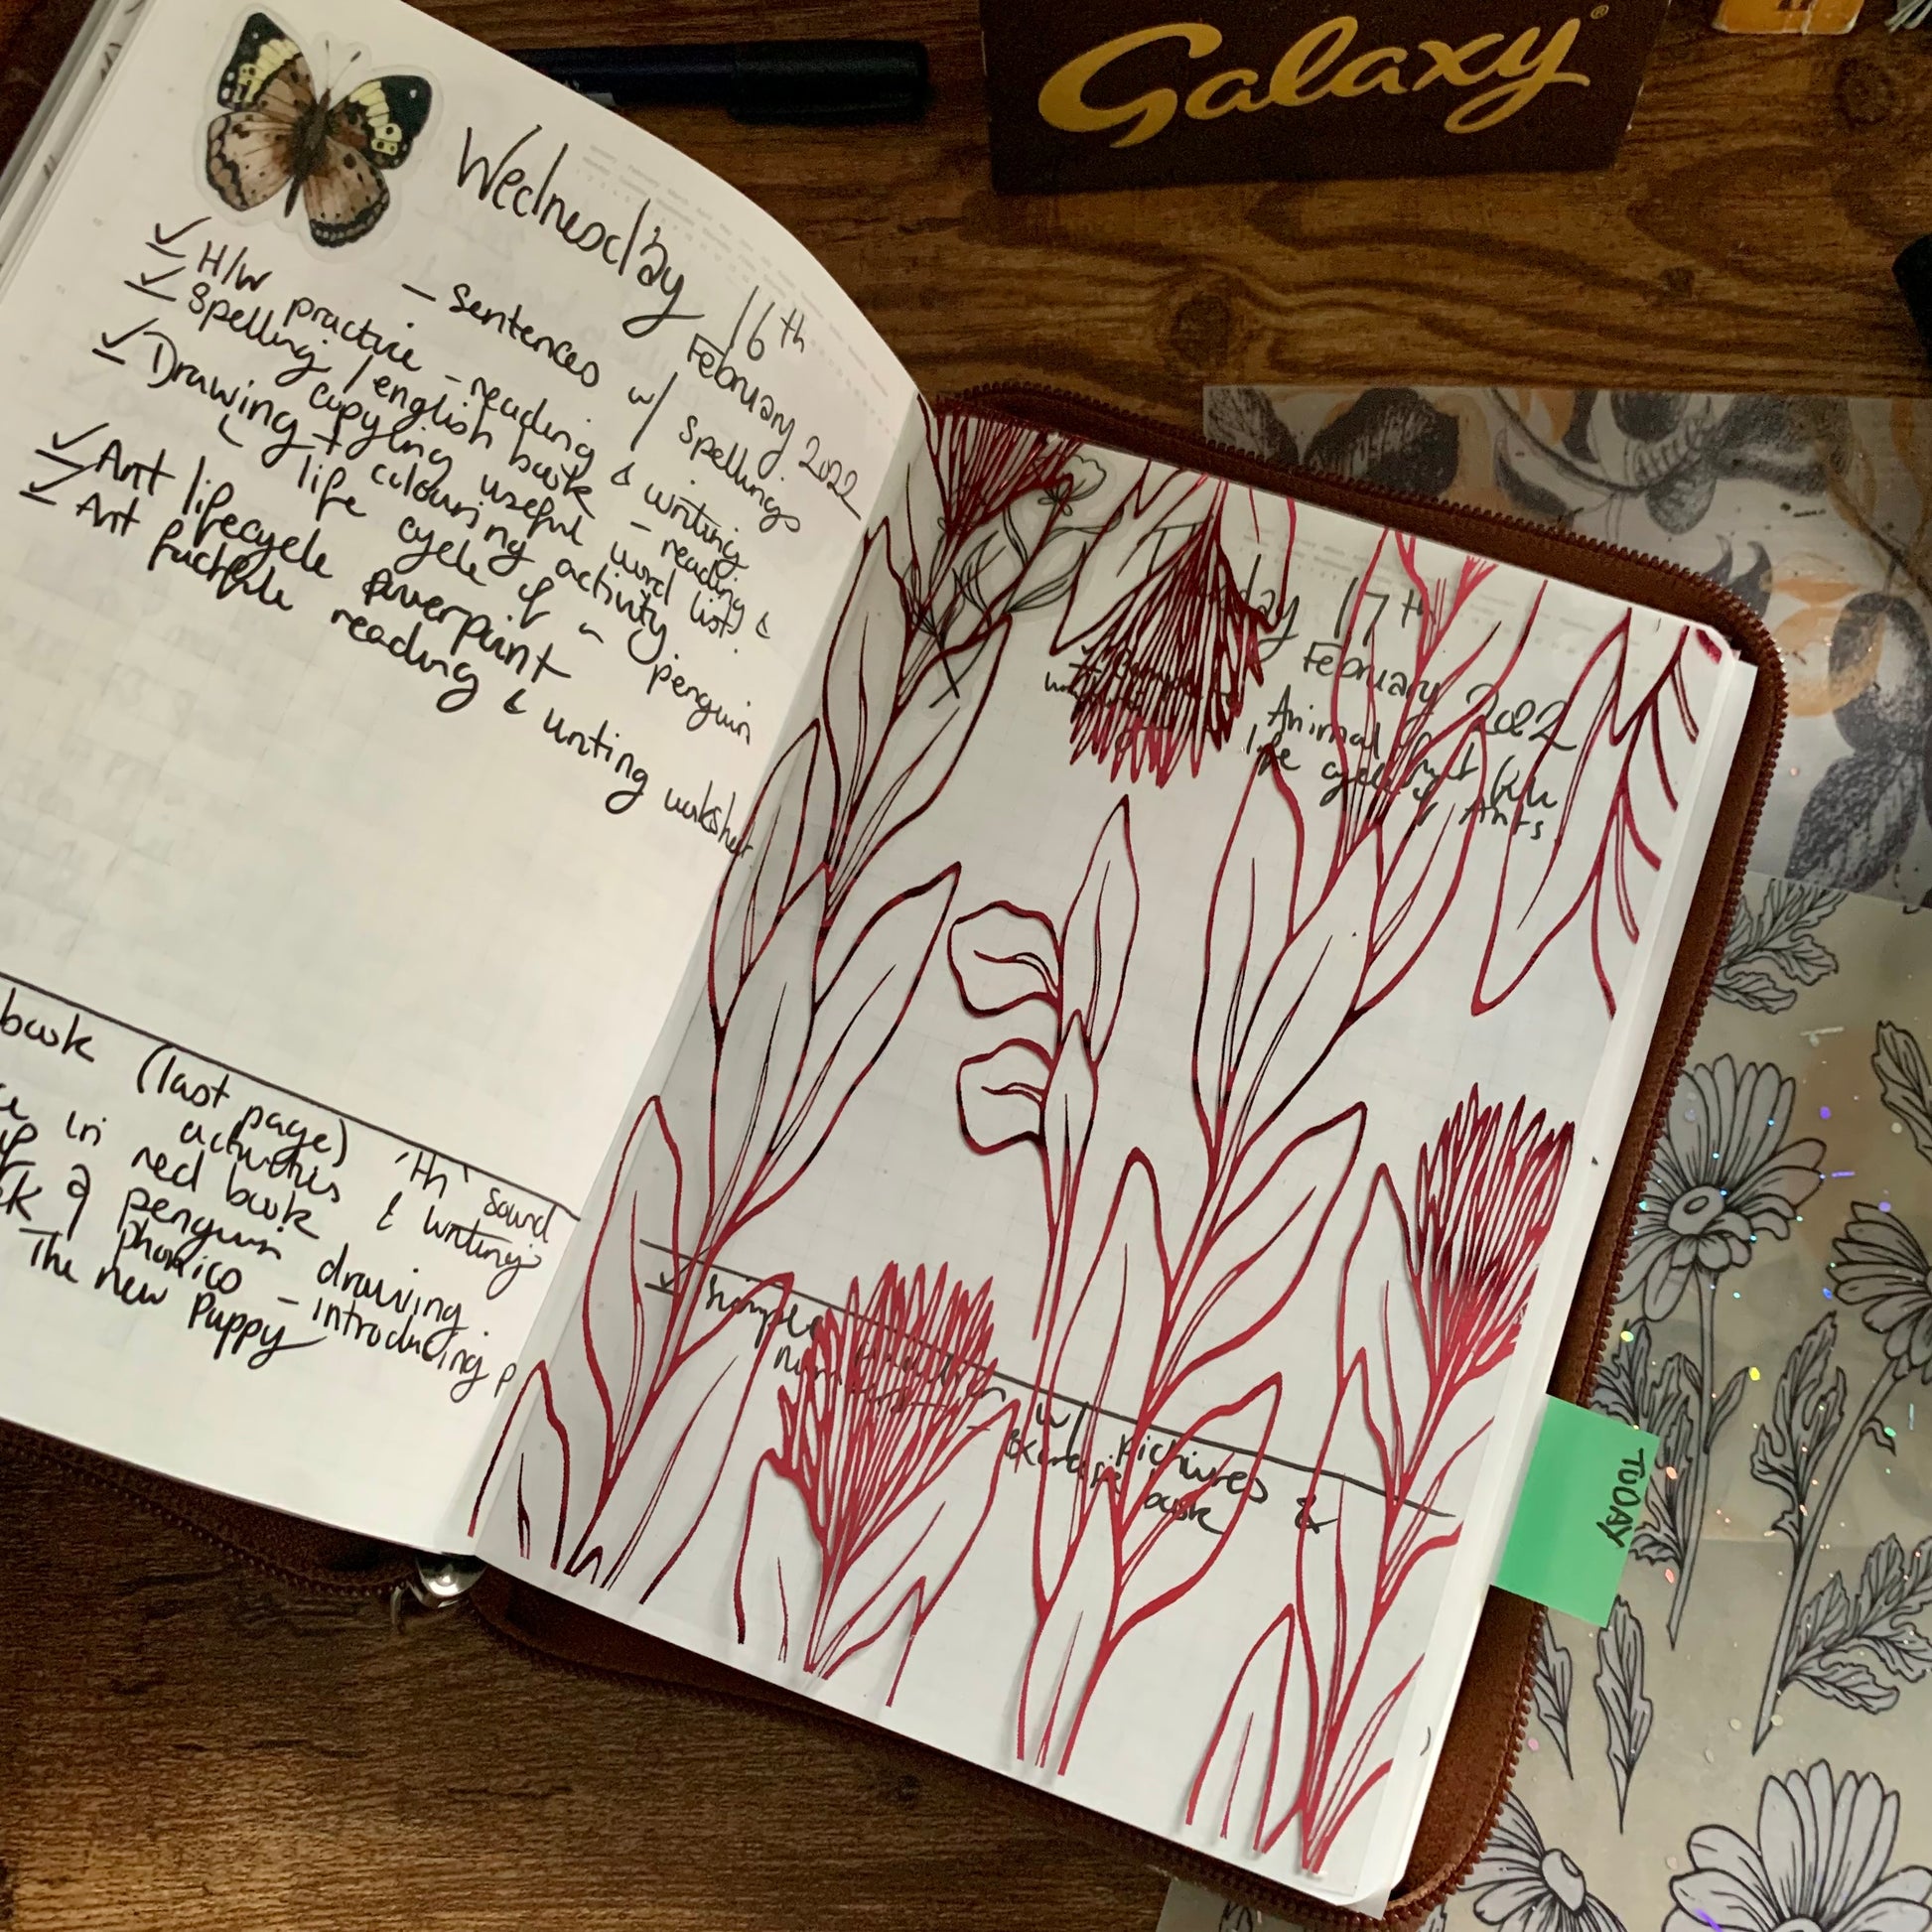 Galaxy
Wednesday 16th
February 2022
- sentences w/ spellings
H/W practice - reading & writing
Spelling / english book - reading &
copying useful word list.
Drawing + colouring activity.
life cycle of a penguin
Ant lifecycle powerpoint
Ant factfile reading & writing
book (last page) 'th' sound
activities & writing
in red book
penguin drawing.
phonics - introducing p
The new Puppy
day 17th
February 2022
Animal
life cycle of Ants
Simple w/ Pictures &
book
TODAY